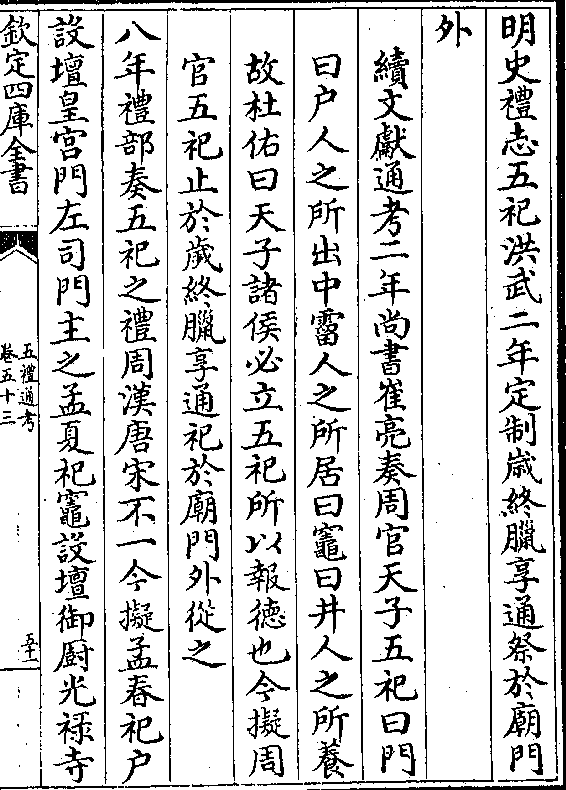 明史禮志五祀洪武二年定制歲終臘享通祭於廟門
外
續文獻通考二年尚書崔亮奏周官天子五祀曰門
曰户人之所出中霤人之所居曰竈曰井人之所養
故杜佑曰天子諸侯必立五祀所以報德也今擬周
官五祀止於歲終臘享通祀於廟門外從之
八年禮部奏五祀之禮周漢唐宋不一今擬孟春祀户
設壇皇宮門左司門主之孟夏祀竈設壇御厨光禄寺
欽定四庫全書
五禮通考
卷五十三